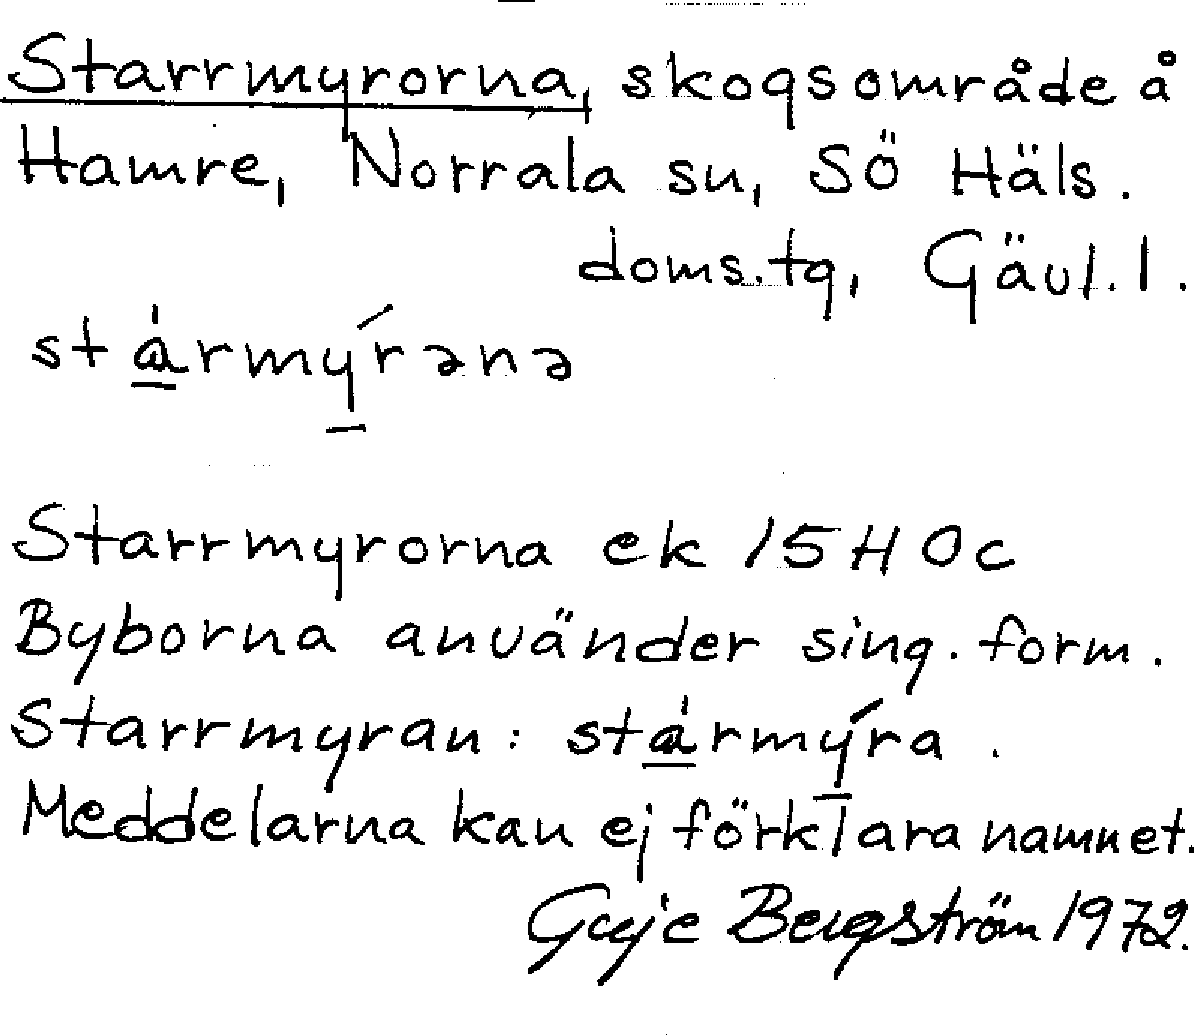 Starrmyrorna, skogsområde å
Hamre, Norrala sn, Sö Häls.
doms.tg, Gävl. l.
stármýrənə
Starrmyrorna ek 15H 0c
Byborna använder sing. form.
Starrmyran: stármýra.
Meddelarna kan ej förklara namnet.
Bergström 1972.